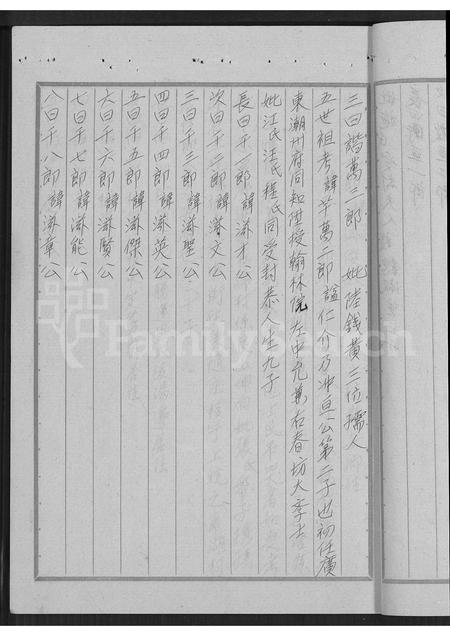 三曰諧萬三郎 妣陸錢黃三位孺人
五世祖考諱芊萬二郎諡仁介乃冲亘公第二子也初任廣
東潮州府同知陞授翰林院左中允兼右春坊大學士
妣江氏汪氏程氏同受封恭人生九子
長曰千一郎諱淋才公
次曰千二郎諱淋文公
三曰千三郎諱淋聖公
四曰千四郎諱淋英公
五曰千五郎諱淋傑公
六曰千六郎諱淋賢公
七曰千七郎諱淋能公
八曰千八郎諱淋章公
FamilySearch